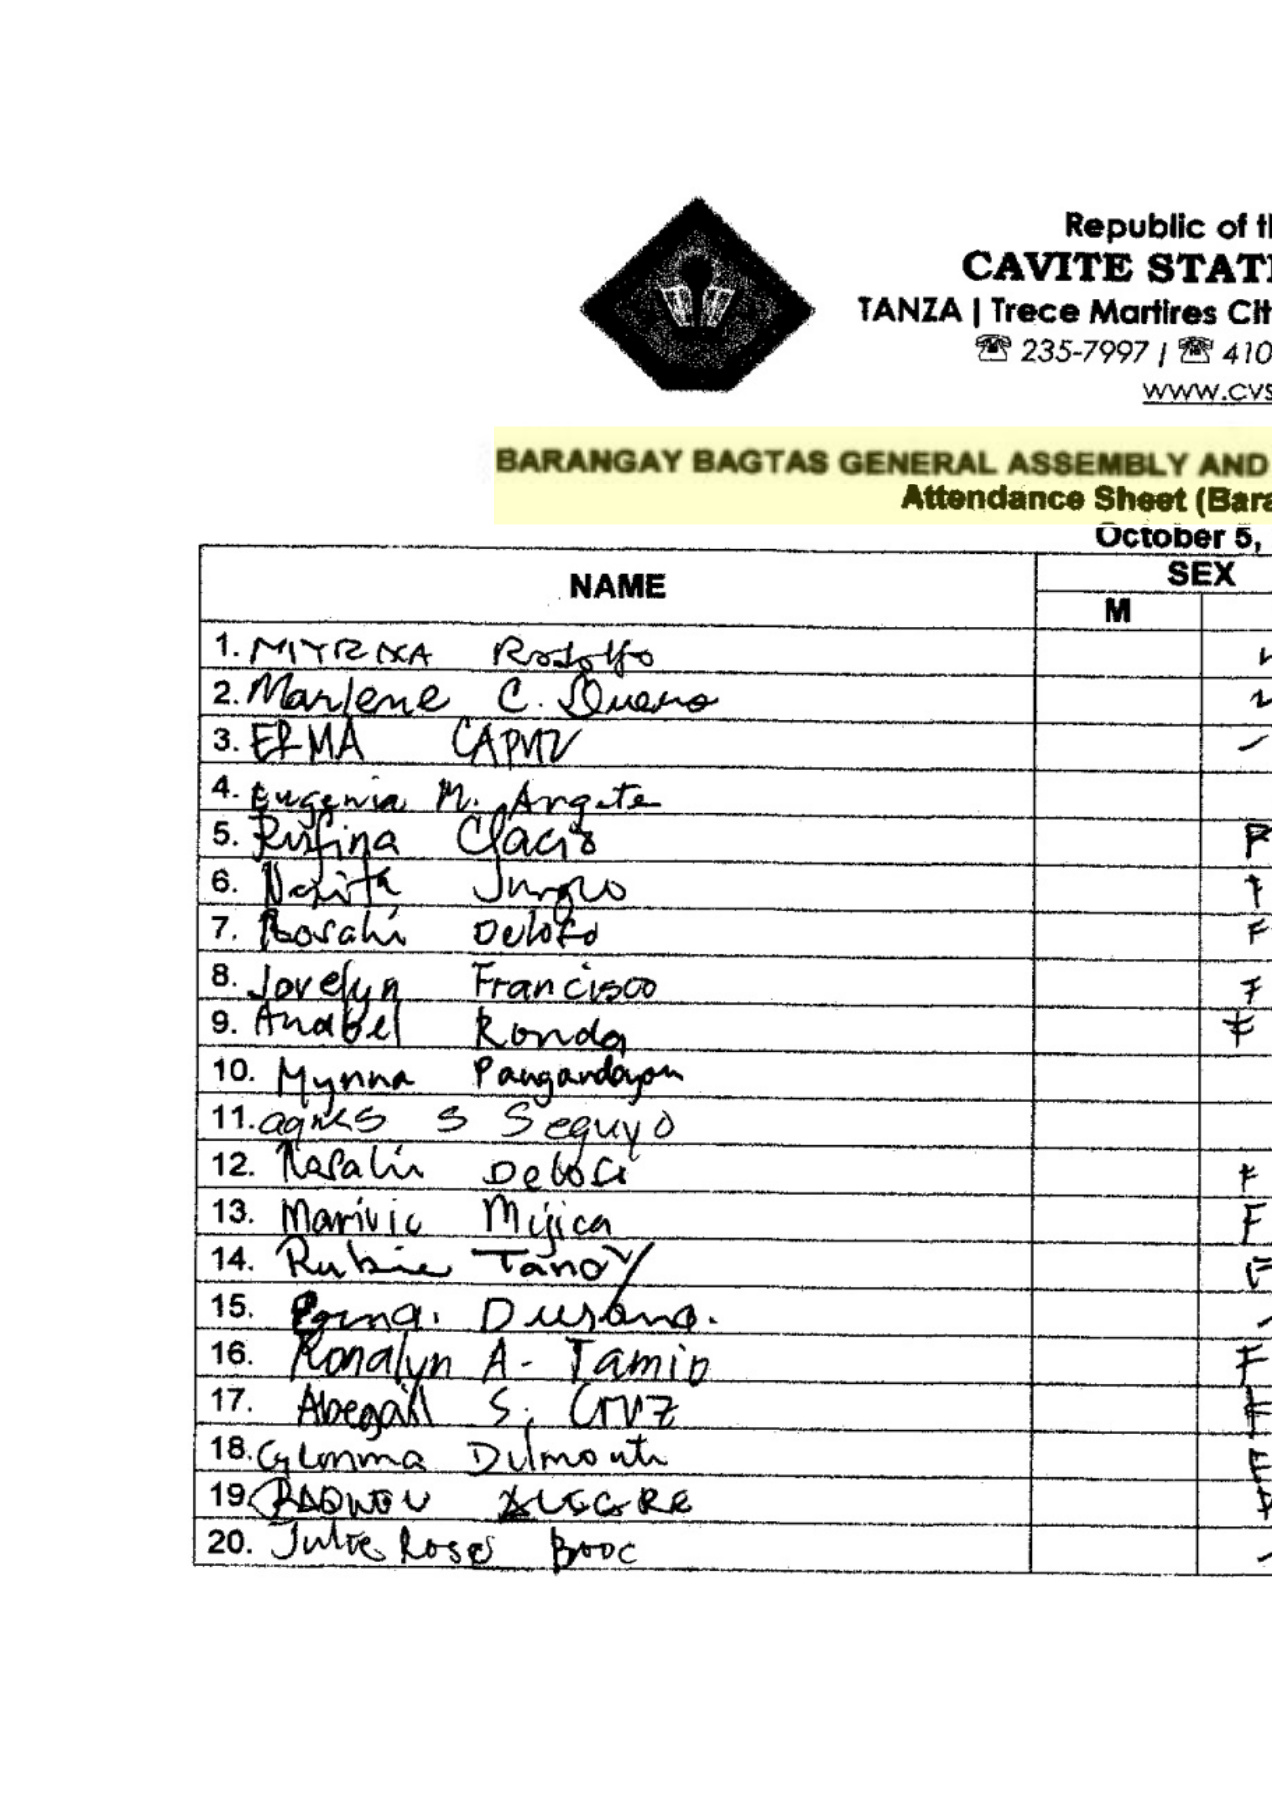 Republic of th
CAVITE STATE
TANZA | Trece Martires Cit
☏ 235-7997 | ☏ 410
www.cvs
BARANGAY BAGTAS GENERAL ASSEMBLY AND
Attendance Sheet (Bara
October 5,
NAME SEX
M
1. Rodolfo
2. Marlene C.
3. ERMA CAPUZ
4. Eugenia M. Argete
5. Rufina Clacio F
6. F
7. Rosalin F
8. Jovelyn Francisco F
9. Anabel Ronda F
10. Mynna Pangandoyon
11. agnes S Seguyo
12. Rosalin F
13. Marivic Mijica F
14. Rubie Tanoy
15. Durano.
16. Ronalyn A- Tamio F
17. Abegaill S. Cruz F
18. F
19. ALEGRE
20. Julie Rose Booc